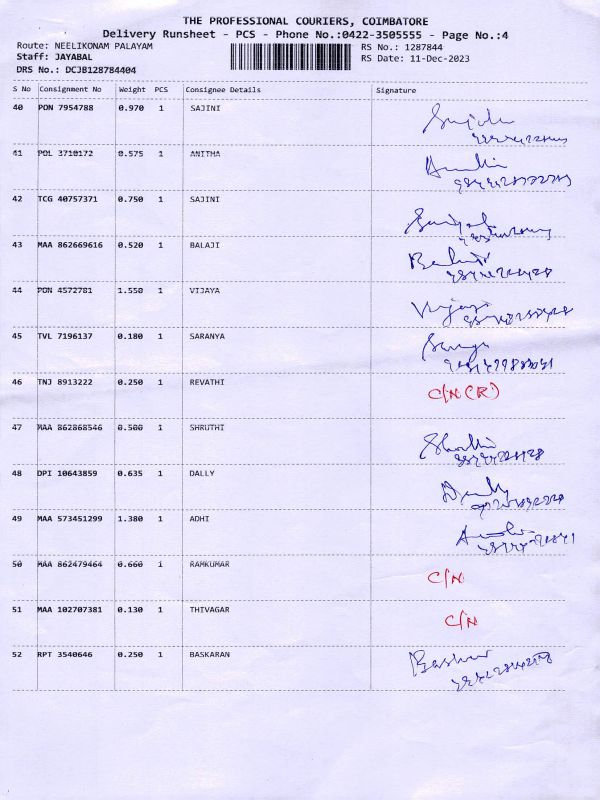 THE PROFESSIONAL COURIERS, COIMBATORE
Delivery Runsheet - PCS - Phone No.:0422-3505555 - Page No.:4
Route: NEELIKONAM PALAYAM RS No.: 1287844
Staff: JAYABAL RS Date: 11-Dec-2023
DRS No.: DCJB128784404
S No Consignment No Weight PCS Consignee Details Signature
40 PON 7954788 0.970 1 SAJINI
41 POL 3710172 0.575 1 ANITHA
42 TCG 40757371 0.750 1 SAJINI
43 MAA 862669616 0.520 1 BALAJI
44 PON 4572781 1.550 1 VIJAYA
45 TVL 7196137 0.180 1 SARANYA
46 TNJ 8913222 0.250 1 REVATHI C/N (R)
47 MAA 862868546 0.500 1 SHRUTHI
48 DPI 10643859 0.635 1 DALLY
49 MAA 573451299 1.380 1 ADHI
50 MAA 862479464 0.660 1 RAMKUMAR C/N
51 MAA 102707381 0.130 1 THIVAGAR C/N
52 RPT 3540646 0.250 1 BASKARAN